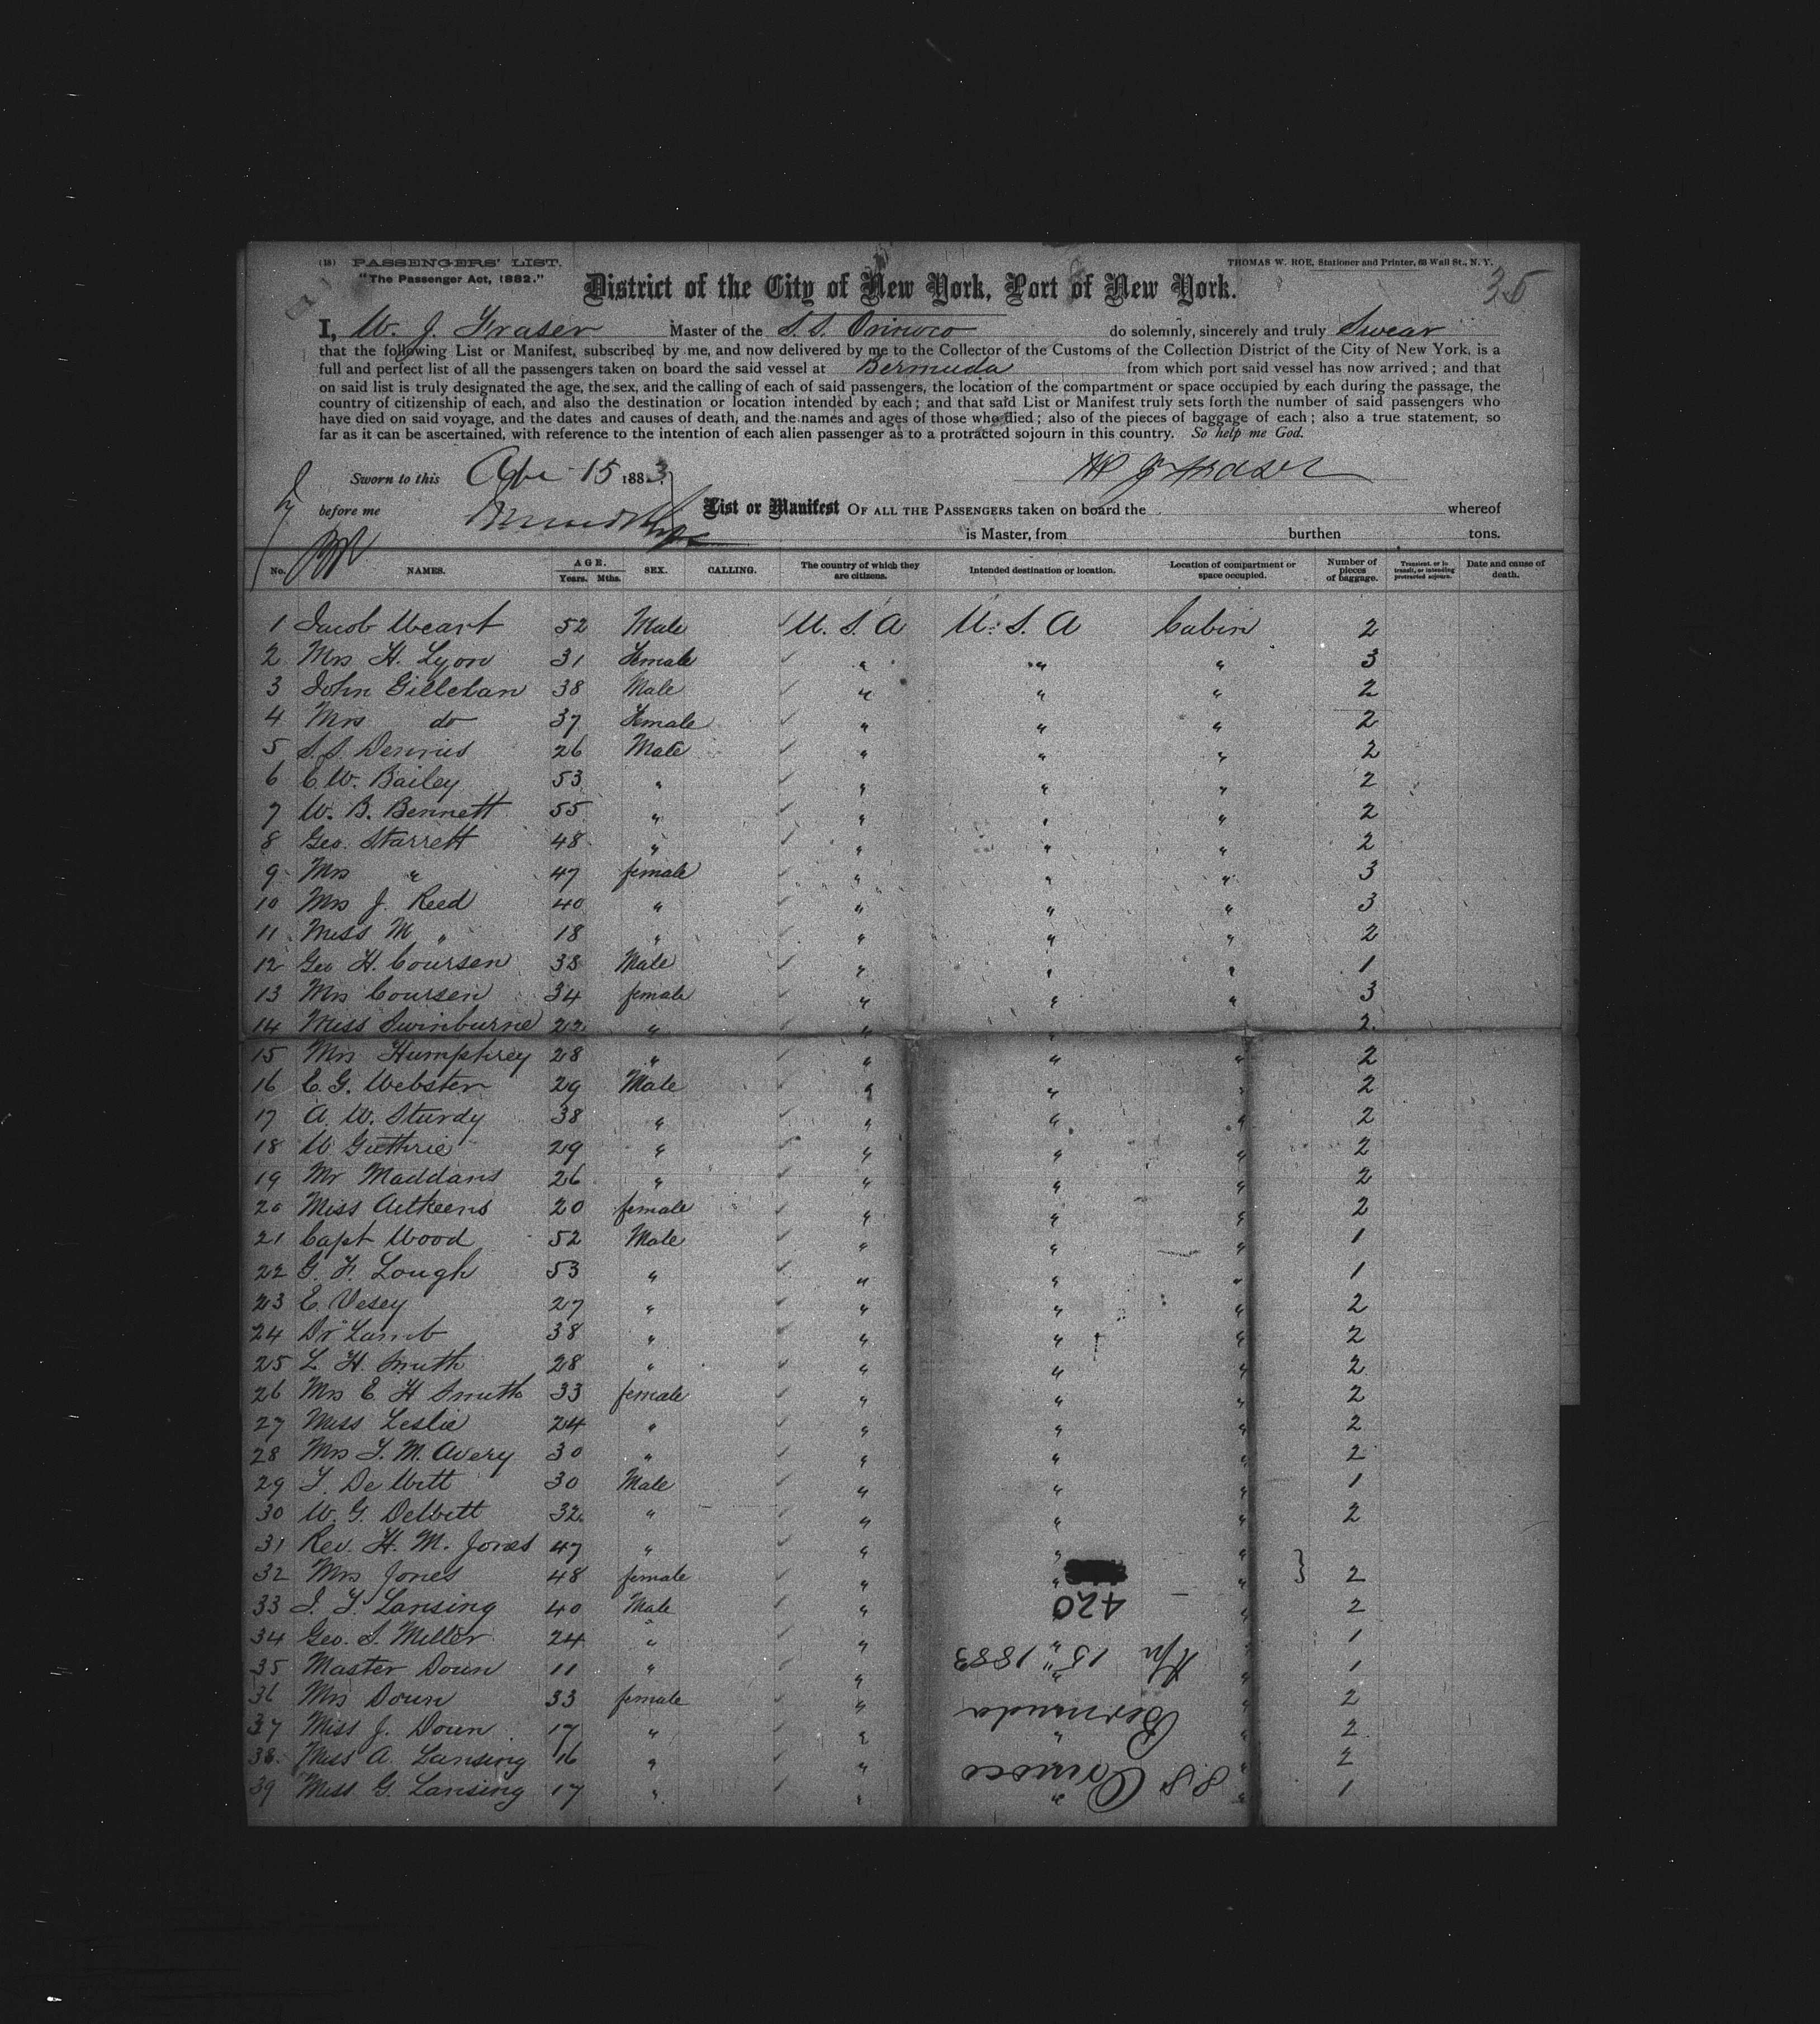 (18) PASSENGERS' LIST.
"The Passenger Act, 1882."
THOMAS W. ROE, Stationer and Printer, 63 Wall St., N. Y.
35
District of the City of New York, Port of New York.
I, W. J. Fraser Master of the S. S. Orinoco do solemnly, sincerely and truly Swear
that the following List or Manifest, subscribed by me, and now delivered by me to the Collector of the Customs of the Collection District of the City of New York, is a
full and perfect list of all the passengers taken on board the said vessel at Bermuda from which port said vessel has now arrived; and that
on said list is truly designated the age, the sex, and the calling of each of said passengers, the location of the compartment or space occupied by each during the passage, the
country of citizenship of each, and also the destination or location intended by each; and that said List or Manifest truly sets forth the number of said passengers who
have died on said voyage, and the dates and causes of death, and the names and ages of those who died; also of the pieces of baggage of each; also a true statement, so
far as it can be ascertained, with reference to the intention of each alien passenger as to a protracted sojourn in this country. So help me God.
Sworn to this Apr 15 1883 W J Fraser
before me
List or Manifest OF ALL THE PASSENGERS taken on board the whereof
is Master, from burthen tons.
No. NAMES. AGE. Years. Mths. SEX. CALLING. The country of which they are citizens. Intended destination or location. Location of compartment or space occupied. Number of pieces of baggage. Transient, or in transit, or intending protracted sojourn. Date and cause of death.
1 Jacob Weart 52 Male U. S. A U. S. A Cabin 2
2 Mrs H. Lyon 31 Female " " " 3
3 John Gilletan 38 Male " " " 2
4 Mrs do 37 Female " " " 2
5 S. S. Dennis 26 Male " " " 2
6 C. W. Bailey 53 " " " " 2
7 W. B. Bennett 55 " " " " 2
8 Geo. Starrett 48 " " " " 2
9 Mrs " 47 female " " " 3
10 Mrs J. Reed 40 " " " " 3
11 Miss M " 18 " " " " 2
12 Geo H. Coursen 38 Male " " " 1
13 Mrs Coursen 34 female " " " 3
14 Miss Swinburne 22 " " " " 2
15 Mrs Humphrey 28 " " " " 2
16 E. G. Webster 29 Male " " " 2
17 A. W. Sturdy 38 " " " " 2
18 W Guthrie 29 " " " " 2
19 Mr Maddans 26 " " " " 2
20 Miss Aitkeens 20 female " " " 2
21 Capt Wood 52 Male " " " 1
22 G. F. Lough 53 " " " " 1
23 E. Vesey 27 " " " " 2
24 Dr Lamb 38 " " " " 2
25 L. H. Smith 28 " " " " 2
26 Mrs E H Smith 33 female " " " 2
27 Miss Leslie 24 " " " " 2
28 Mrs T. M. Avery 30 " " " " 2
29 T. De Witt 30 Male " " " 1
30 W. G. DeWitt 32 " " " " 2
31 Rev. H. M. Jones 47 " " " "
32 Mrs Jones 48 female " " " } 2
33 J. T. Lansing 40 Male " " 2
34 Geo. S. Miller 24 " " " " 1
35 Master Doun 11 " " " " 1
36 Mrs Doun 33 female " " 2
37 Miss J. Doun 17 " " " " 2
38 Miss A. Lansing 16 " " " 2
39 Miss G. Lansing 17 " " " " 1
S S Orinoco
Bermuda
Apr 15" 1883
420